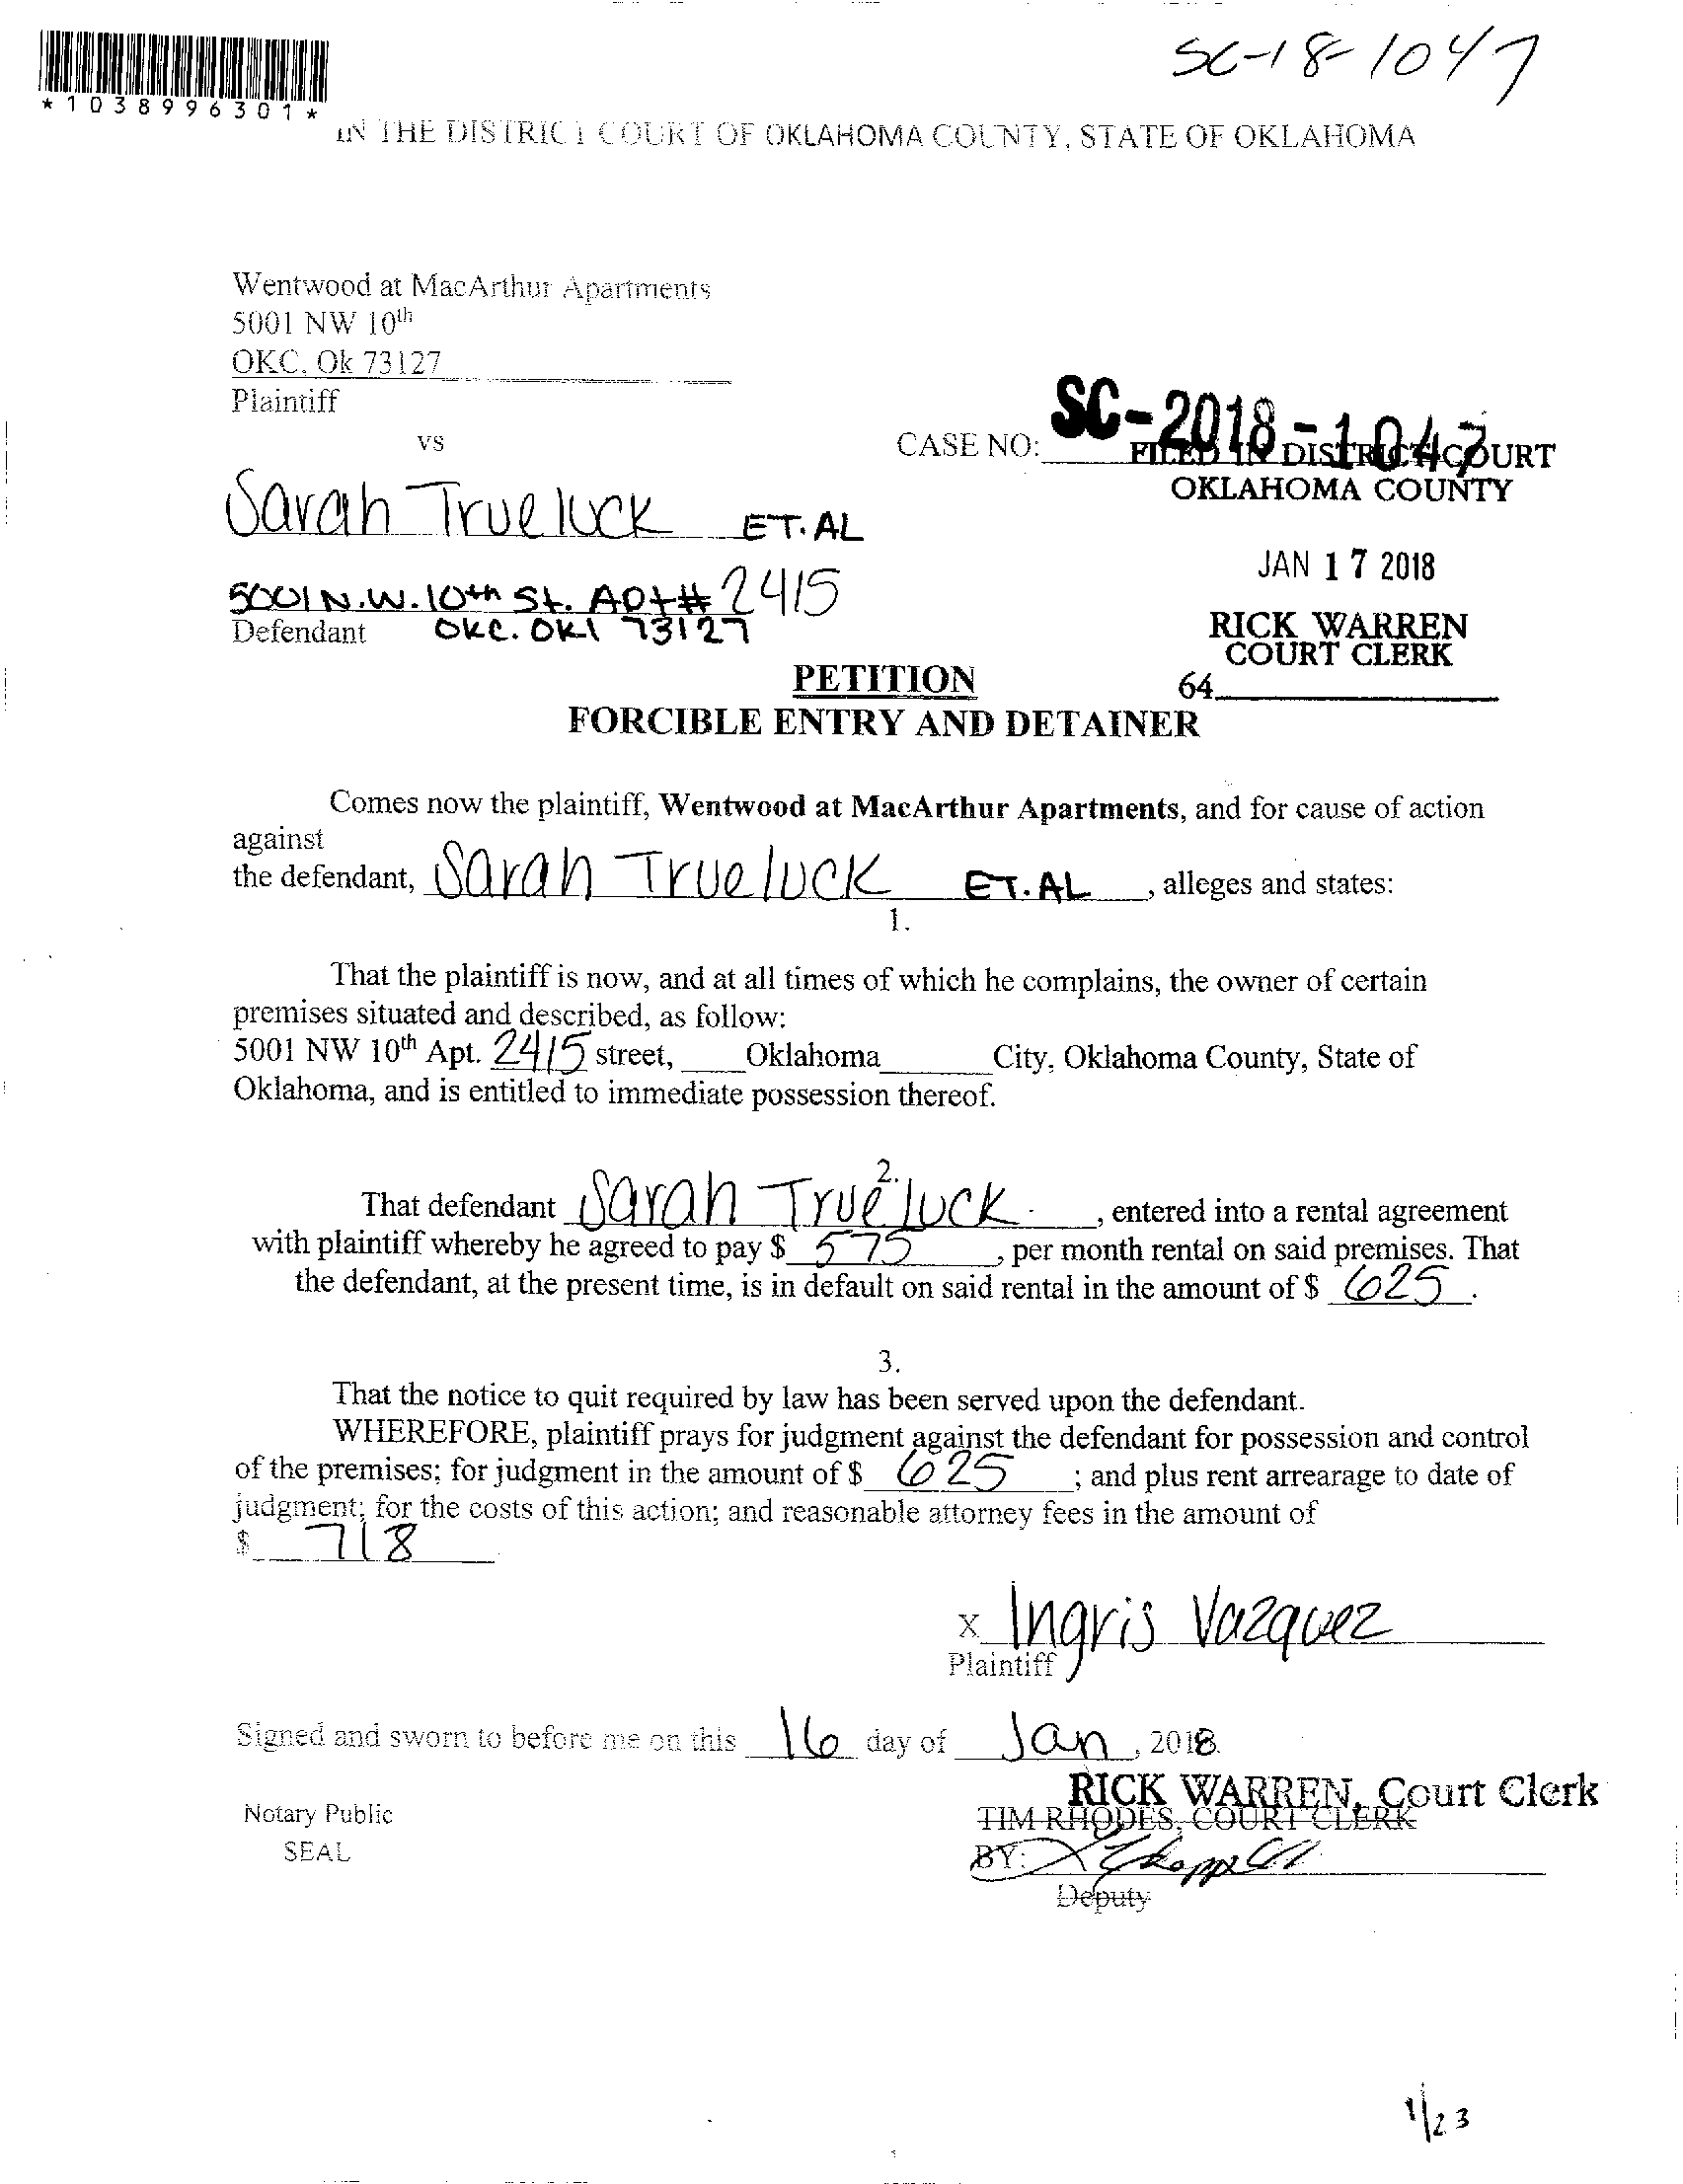 SC-18-1047
*1038996301*
IN THE DISTRICT COURT OF OKLAHOMA COUNTY, STATE OF OKLAHOMA
Wentwood at MacArthur Apartments
5001 NW 10th
OKC, Ok 73127
Plaintiff
vs
CASE NO: SC-2018-1047
FILED IN DISTRICT COURT
OKLAHOMA COUNTY
Sarah Trueluck ET.AL
JAN 17 2018
5001 N.W. 10th St. Apt# 2415
Defendant OKC. Okl 73127
RICK WARREN
COURT CLERK
64
PETITION
FORCIBLE ENTRY AND DETAINER
Comes now the plaintiff, Wentwood at MacArthur Apartments, and for cause of action
against
the defendant, Sarah Trueluck ET.AL, alleges and states:
1.
That the plaintiff is now, and at all times of which he complains, the owner of certain
premises situated and described, as follow:
5001 NW 10th Apt. 2415 street, Oklahoma City, Oklahoma County, State of
Oklahoma, and is entitled to immediate possession thereof.
2.
That defendant Sarah Trueluck, entered into a rental agreement
with plaintiff whereby he agreed to pay $ 575, per month rental on said premises. That
the defendant, at the present time, is in default on said rental in the amount of $ 625.
3.
That the notice to quit required by law has been served upon the defendant.
WHEREFORE, plaintiff prays for judgment against the defendant for possession and control
of the premises; for judgment in the amount of $ 625; and plus rent arrearage to date of
judgment; for the costs of this action; and reasonable attorney fees in the amount of
$ 718
x Ingris Vazquez
Plaintiff
Signed and sworn to before me on this 16 day of Jan, 2018.
RICK WARREN, Court Clerk
Notary Public
TIM RHODES, COURT CLERK
SEAL
BY:
Deputy
1/23